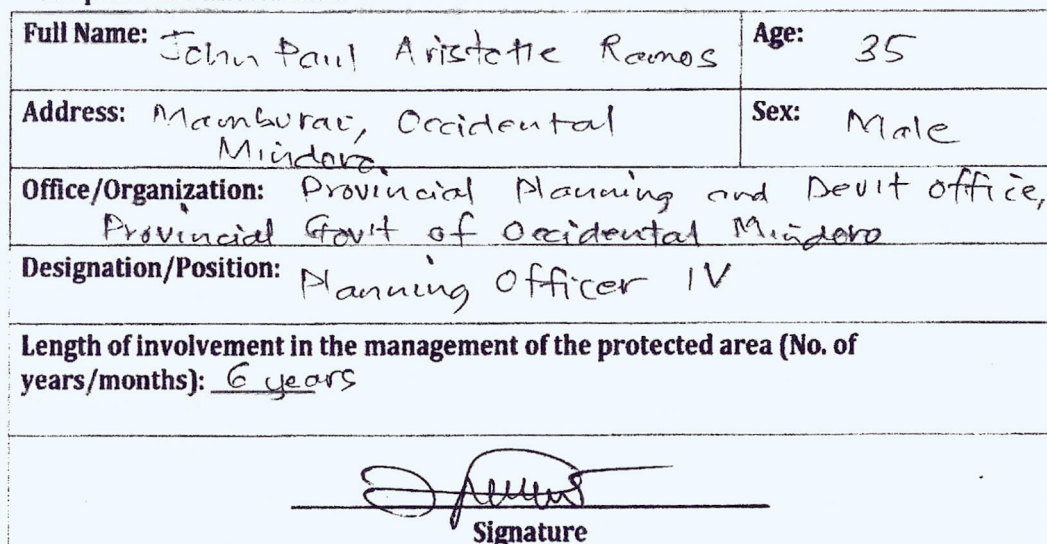 Full Name: John Paul Aristotle Ramos
Age: 35
Address: Mamburao, Occidental
Mindoro
Sex: Male
Office/Organization: Provincial Planning and Dev't office,
Provincial Gov't of Occidental Mindoro
Designation/Position: Planning Officer IV
Length of involvement in the management of the protected area (No. of
years/months): 6 years
Signature